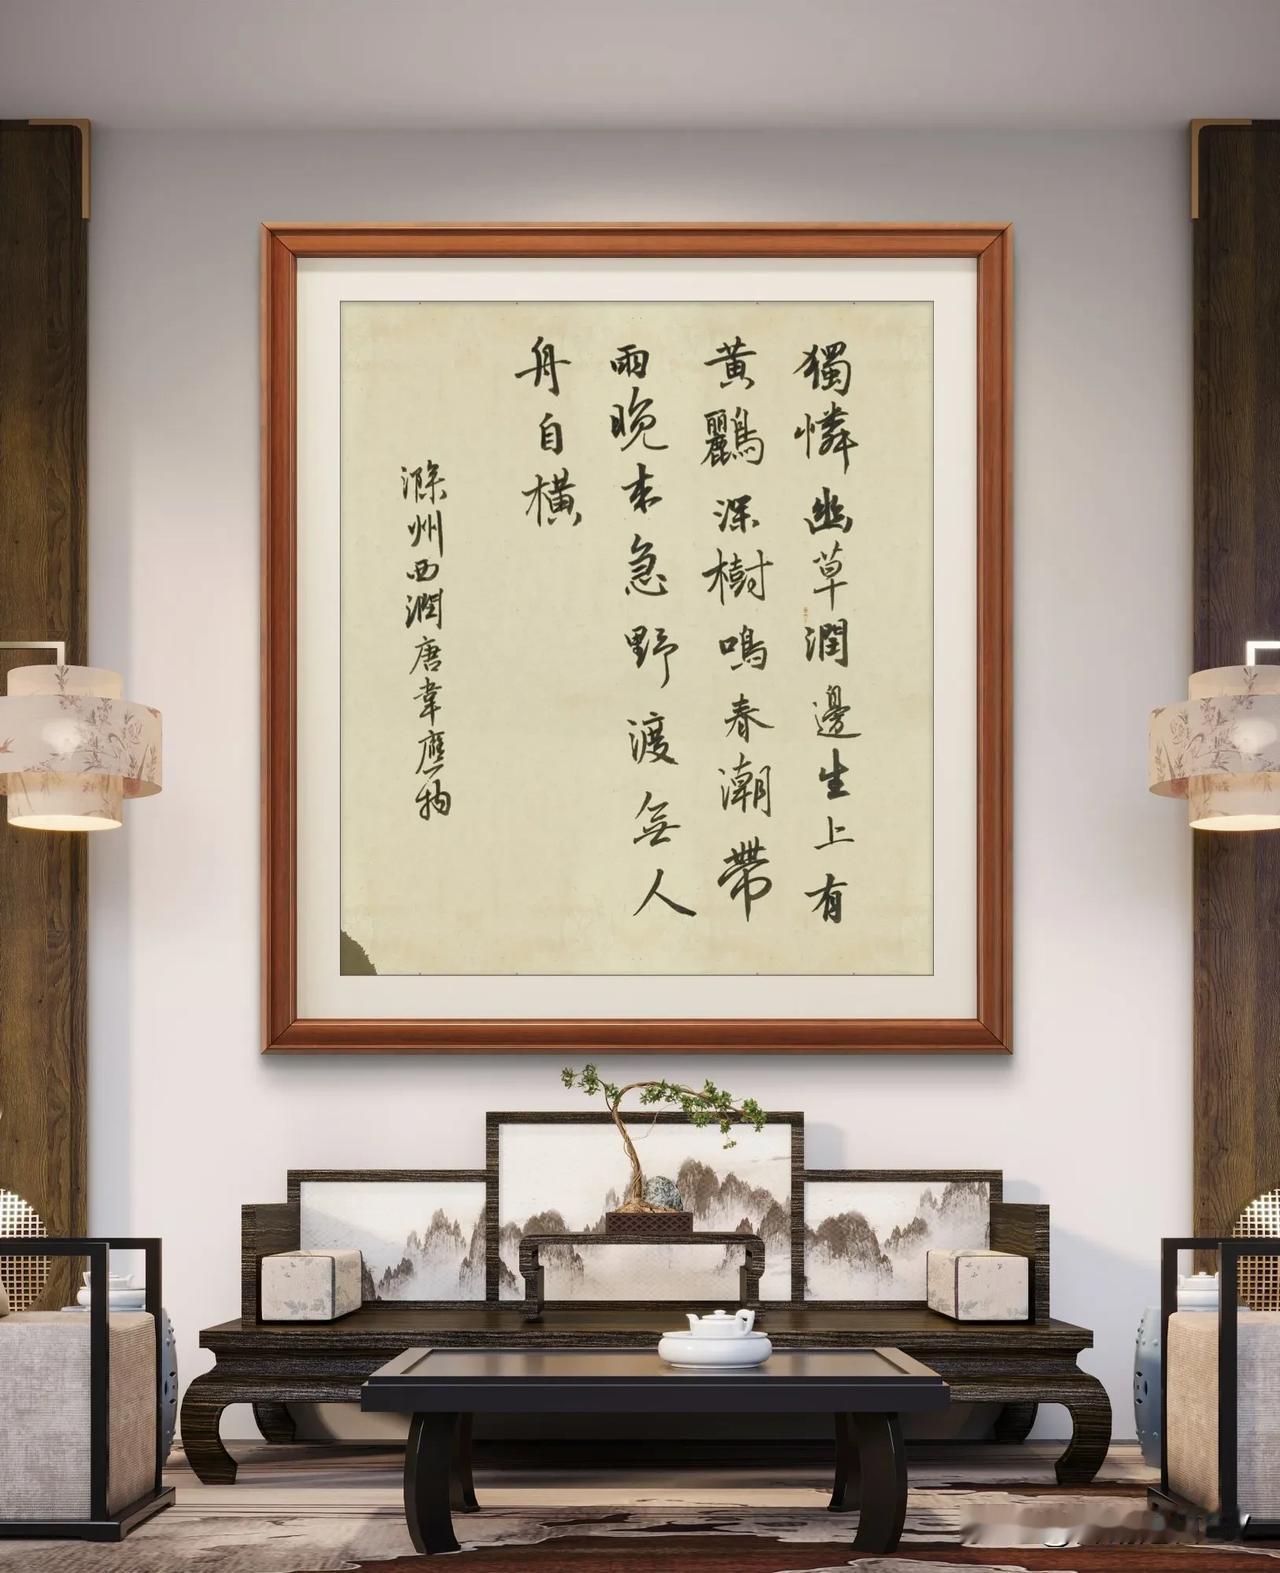 獨憐幽草澗邊生上有
黃鸝深樹鳴春潮帶
雨晚來急野渡無人
舟自橫
滁州西澗唐韋應物